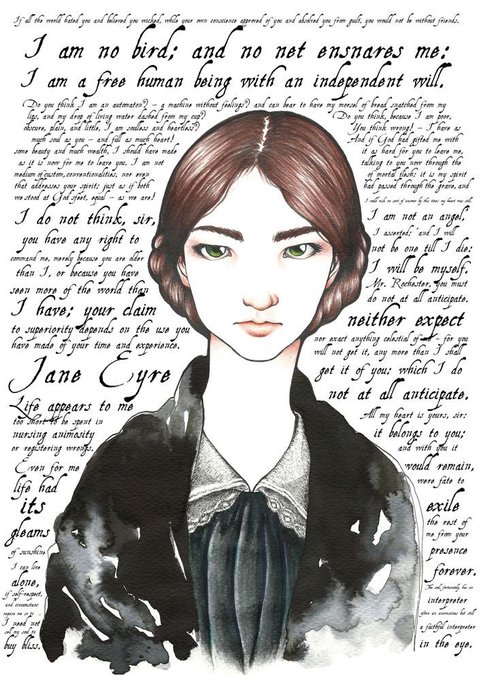 If all the world hated you and believed you wicked, while your own conscience approved of you and absolved you from guilt, you would not be without friends.
I am no bird; and no net ensnares me:
I am a free human being with an independent will.
Do you think I am an automaton? – a machine without feelings? and can bear to have my morsel of bread snatched from my
lips, and my drop of living water dashed from my cup? Do you think, because I am poor,
obscure, plain, and little, I am soulless and heartless? You think wrong! – I have as
much soul as you – and full as much heart! And if God had gifted me with
some beauty and much wealth, I should have made it as hard for you to leave me,
as it is now for me to leave you. I am not talking to you now through the
medium of custom, conventionalities, nor even of mortal flesh: it is my spirit
that addresses your spirit; just as if both had passed through the grave, and
we stood at God's feet, equal – as we are!
I do not think, sir,
you have any right to
command me, merely because you are older
than I, or because you have
seen more of the world than
I have; your claim
to superiority depends on the use you
have made of your time and experience.
Jane Eyre
Life appears to me
too short to be spent in
nursing animosity
or registering wrongs.
Even for me
life had
its
gleams
of sunshine
I can live
alone,
if self-respect,
and circumstances
require me so to
I need not
sell my soul to
buy bliss.
I am not an angel,
I asserted; and I will
not be one till I die:
I will be myself.
Mr. Rochester, you must
do not at all anticipate.
neither expect
nor exact anything celestial of – for you
will not get it, any more than I shall
get it of you: which I do
not at all anticipate.
All my heart is yours, sir:
it belongs to you;
and with you it
would remain,
were fate to
exile
the rest of
me from your
presence
forever.
The soul, fortunately, has an
interpreter
often an unconscious but still
a faithful interpreter
in the eye.